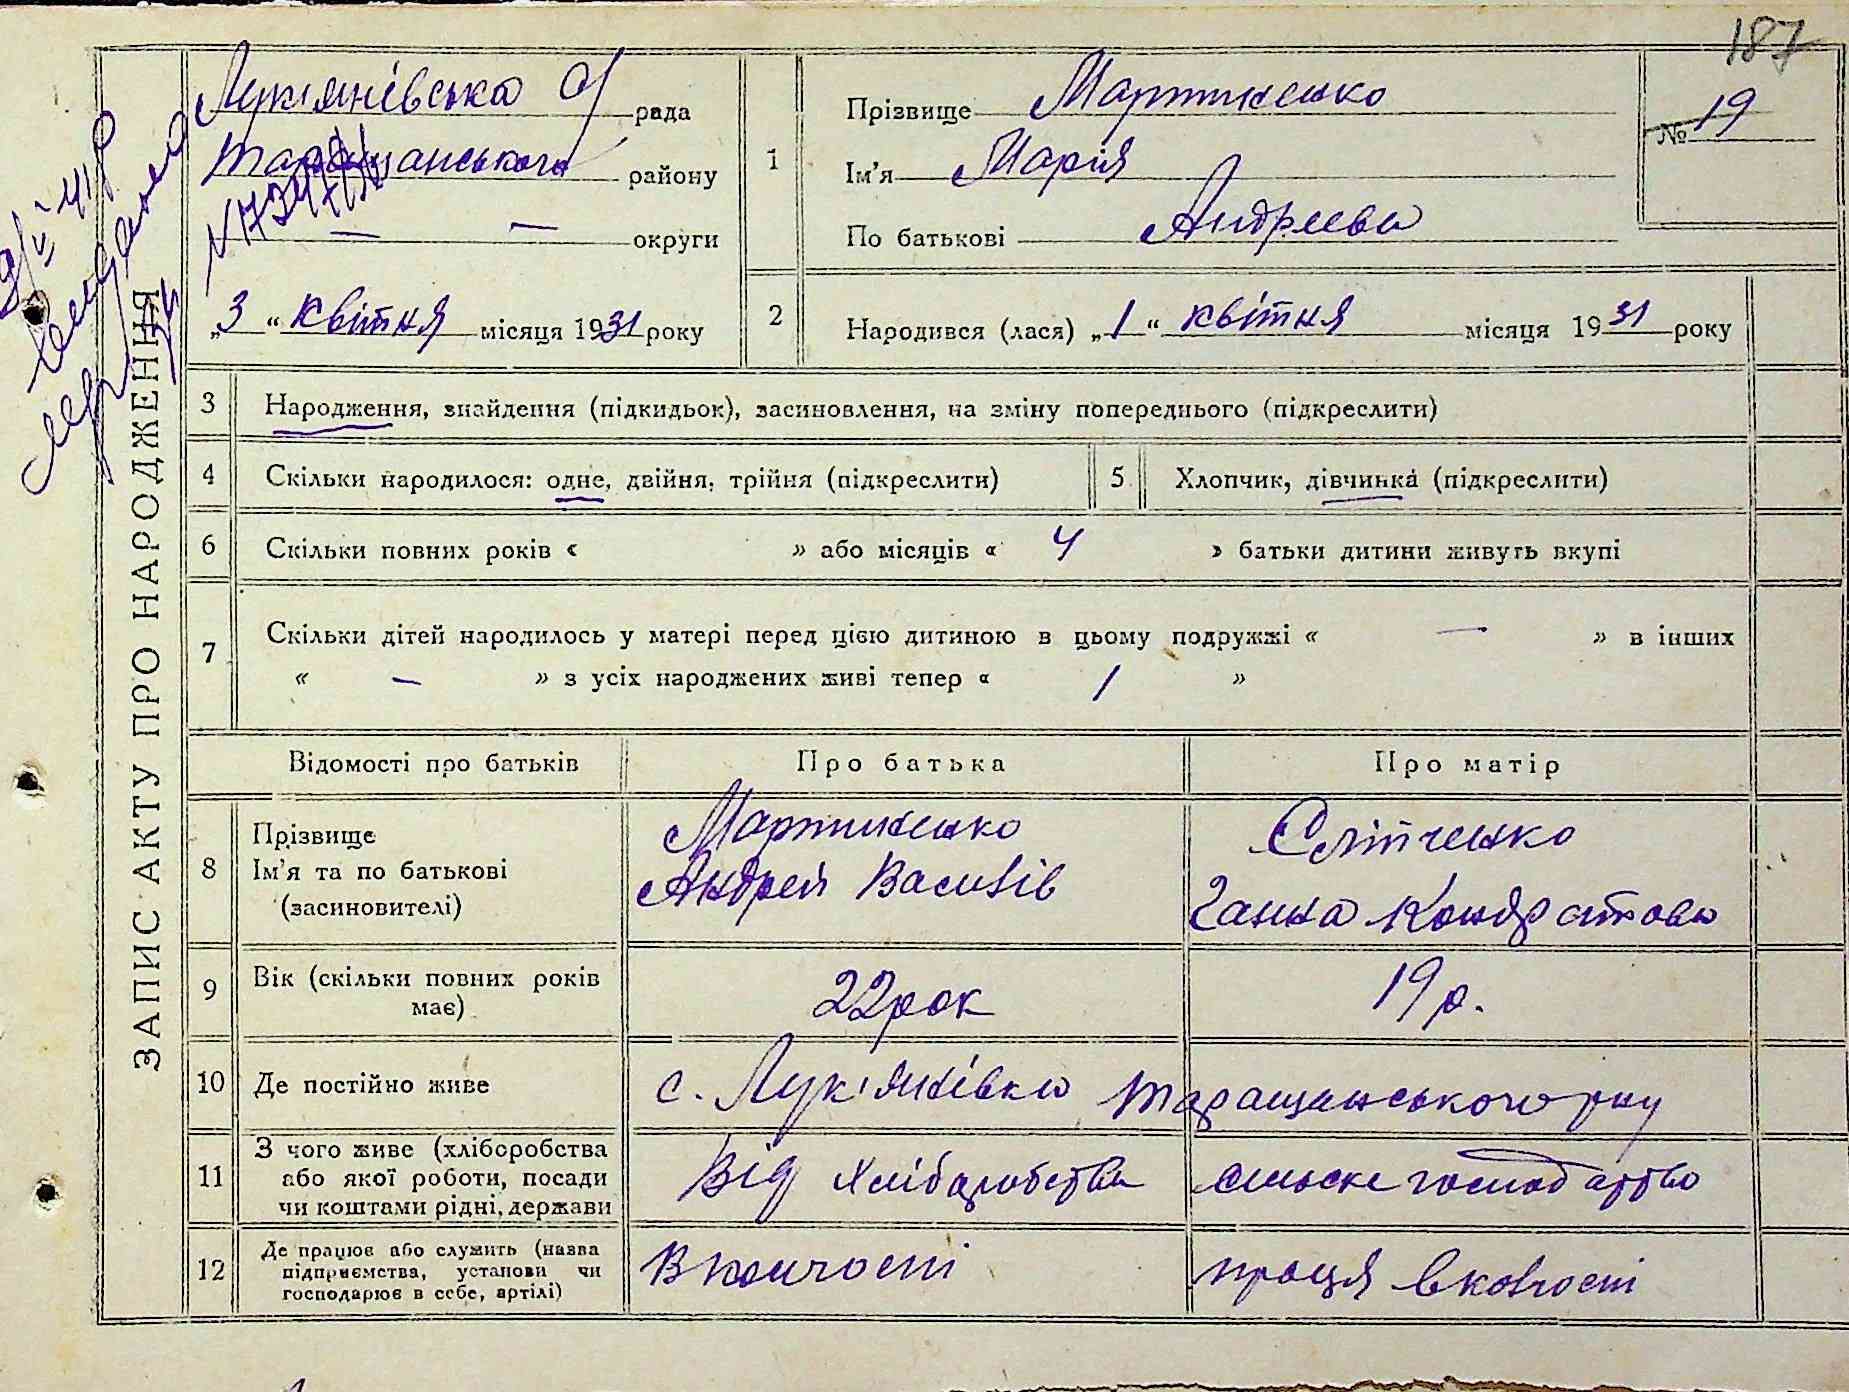 187
ЗАПИС АКТУ ПРО НАРОДЖЕННЯ
Лук'янівська с/ рада
Таращанського району
— — округи
„3“ квітня місяця 1931 року
1
Прізвище Мартиненко
Ім'я Марія
По батькові Андреева
№ 19
2
Народився (лася) „1“ квітня місяця 1931 року
3 Народження, знайдення (підкидьок), засиновлення, на зміну попереднього (підкреслити)
4 Скільки народилося: одне, двійня, трійня (підкреслити)
5 Хлопчик, дівчинка (підкреслити)
6 Скільки повних років « » або місяців « 4 » батьки дитини живуть вкупі
7 Скільки дітей народилось у матері перед цією дитиною в цьому подружжі « — » в інших
« — » з усіх народжених живі тепер « 1 »
Відомості про батьків Про батька Про матір
8 Прізвище
Ім'я та по батькові
(засиновителі)
Мартиненко
Андрей Василів
Сліпченко
Ганна Кондратова
9 Вік (скільки повних років
має)
22 рок
19 р.
10 Де постійно живе
с. Лук'янівка Таращанського р-ну
11 З чого живе (хліборобства
або якої роботи, посади
чи коштами рідні, держави
Від хліборобства
сільське господарство
12 Де працює або служить (назва
підприємства, установи чи
господарює в себе, артілі)
В колгоспі
праця в колгоспі